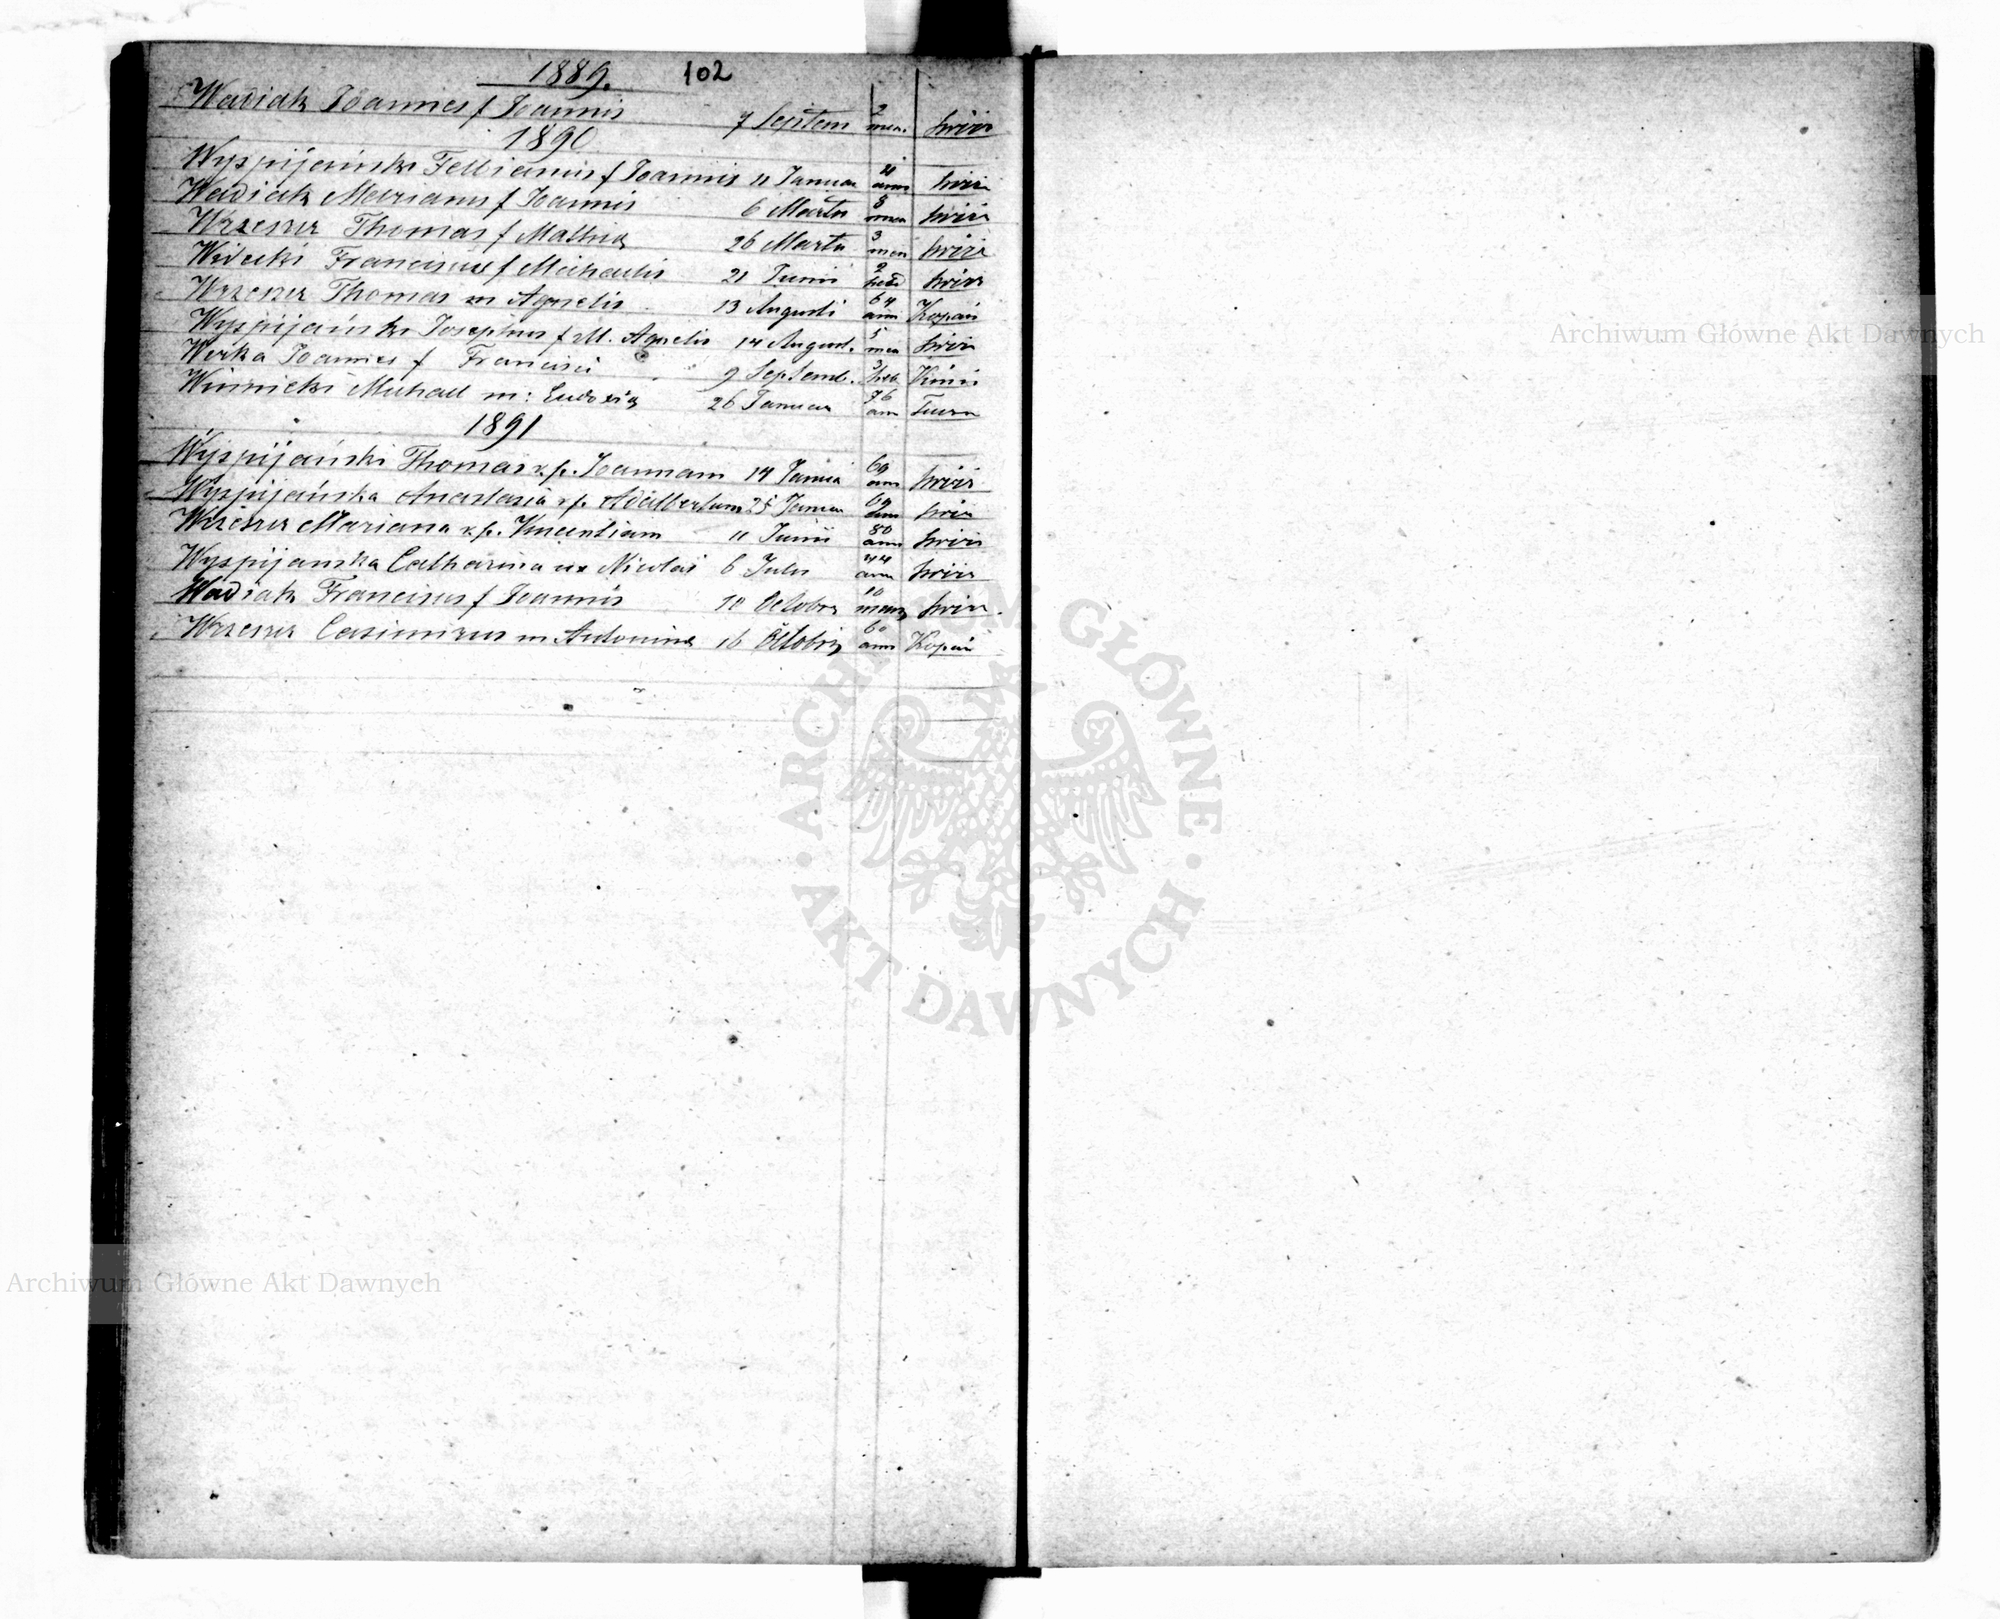 1889. 102
Wadiak Joannes f Joannis 7 Septem 2 men. Swirz
1890
Wyspijański Felicianus f Joannis 11 Januar 4 ann Swirz
Wadiak Marianus f Joannis 6 Martii 8 men Swirz
Wrzeszcz Thomas f Mathia 26 Martii 3 men Swirz
Widecki Franciscus f Michaelis 21 Junii 2 hebd Swirz
Wrzeszcz Thomas m Agnetis 13 Augusti 64 ann Kopań
Wyspijański Josephus f M. Agnetis 14 August. 5 men Swirz
Werka Joannes f Francisci 9 Septemb. 3 heb
Winnicki Michael m: Eudoxia 26 Januar 76 ann
1891
Wyspijański Thomas v. p. Joannam 14 Janua 60 ann Swirz
Wyspijańska Anastasia v. p. Adalbertum 25 Januar ann Swirz
Wrzeszcz Mariana v. p. Vincentium 11 Junii 80 ann Swirz
Wyspijanska Catharina ux Nicolai 6 Julii 44 ann Swirz
Wadiak Franciscus f Joannis 10 Octobr 10 mens Swirz.
Wrzeszcz Casimirus m Antonina 16 Octobris 60 ann Kopań
Archiwum Główne Akt Dawnych
ARCHIWUM GŁÓWNE · AKT DAWNYCH ·
Archiwum Główne Akt Dawnych